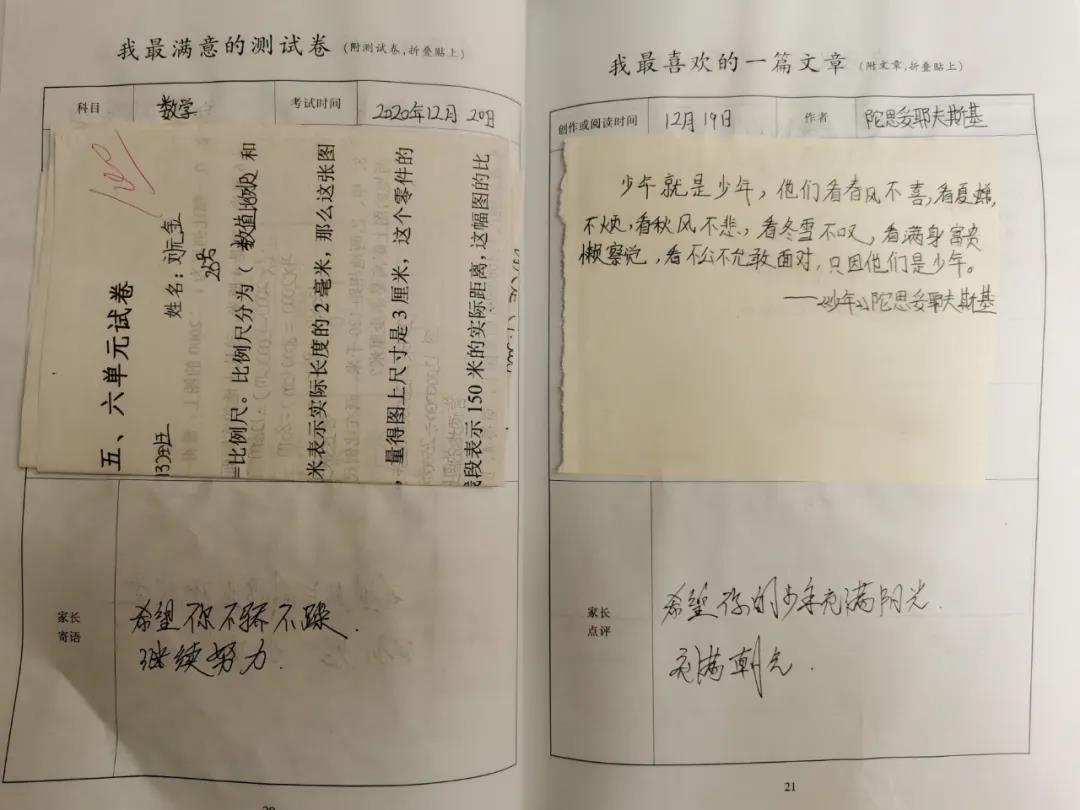 我最满意的测试卷 (附测试卷,折叠贴上)
科目 数学 考试时间 2020年12月20日
100
五、六单元试卷
姓名:刘元金
=比例尺。比例尺分为( 数值比例尺 和
米表示实际长度的 2 毫米，那么这张图
，量得图上尺寸是 3 厘米，这个零件的
线段表示 150 米的实际距离，这幅图的比
家长
寄语
希望你不骄不躁.
继续努力.
20
我最喜欢的一篇文章 (附文章,折叠贴上)
创作或阅读时间 12月19日 作者 陀思妥耶夫斯基
少年就是少年，他们看春风不喜，看夏蝉,
不烦，看秋风不悲，看冬雪不叹，看满身富贵
懒察觉，看不公不允敢面对，只因他们是少年。
——《少年》陀思妥耶夫斯基
家长
点评
希望你的少年充满阳光.
充满朝气.
21